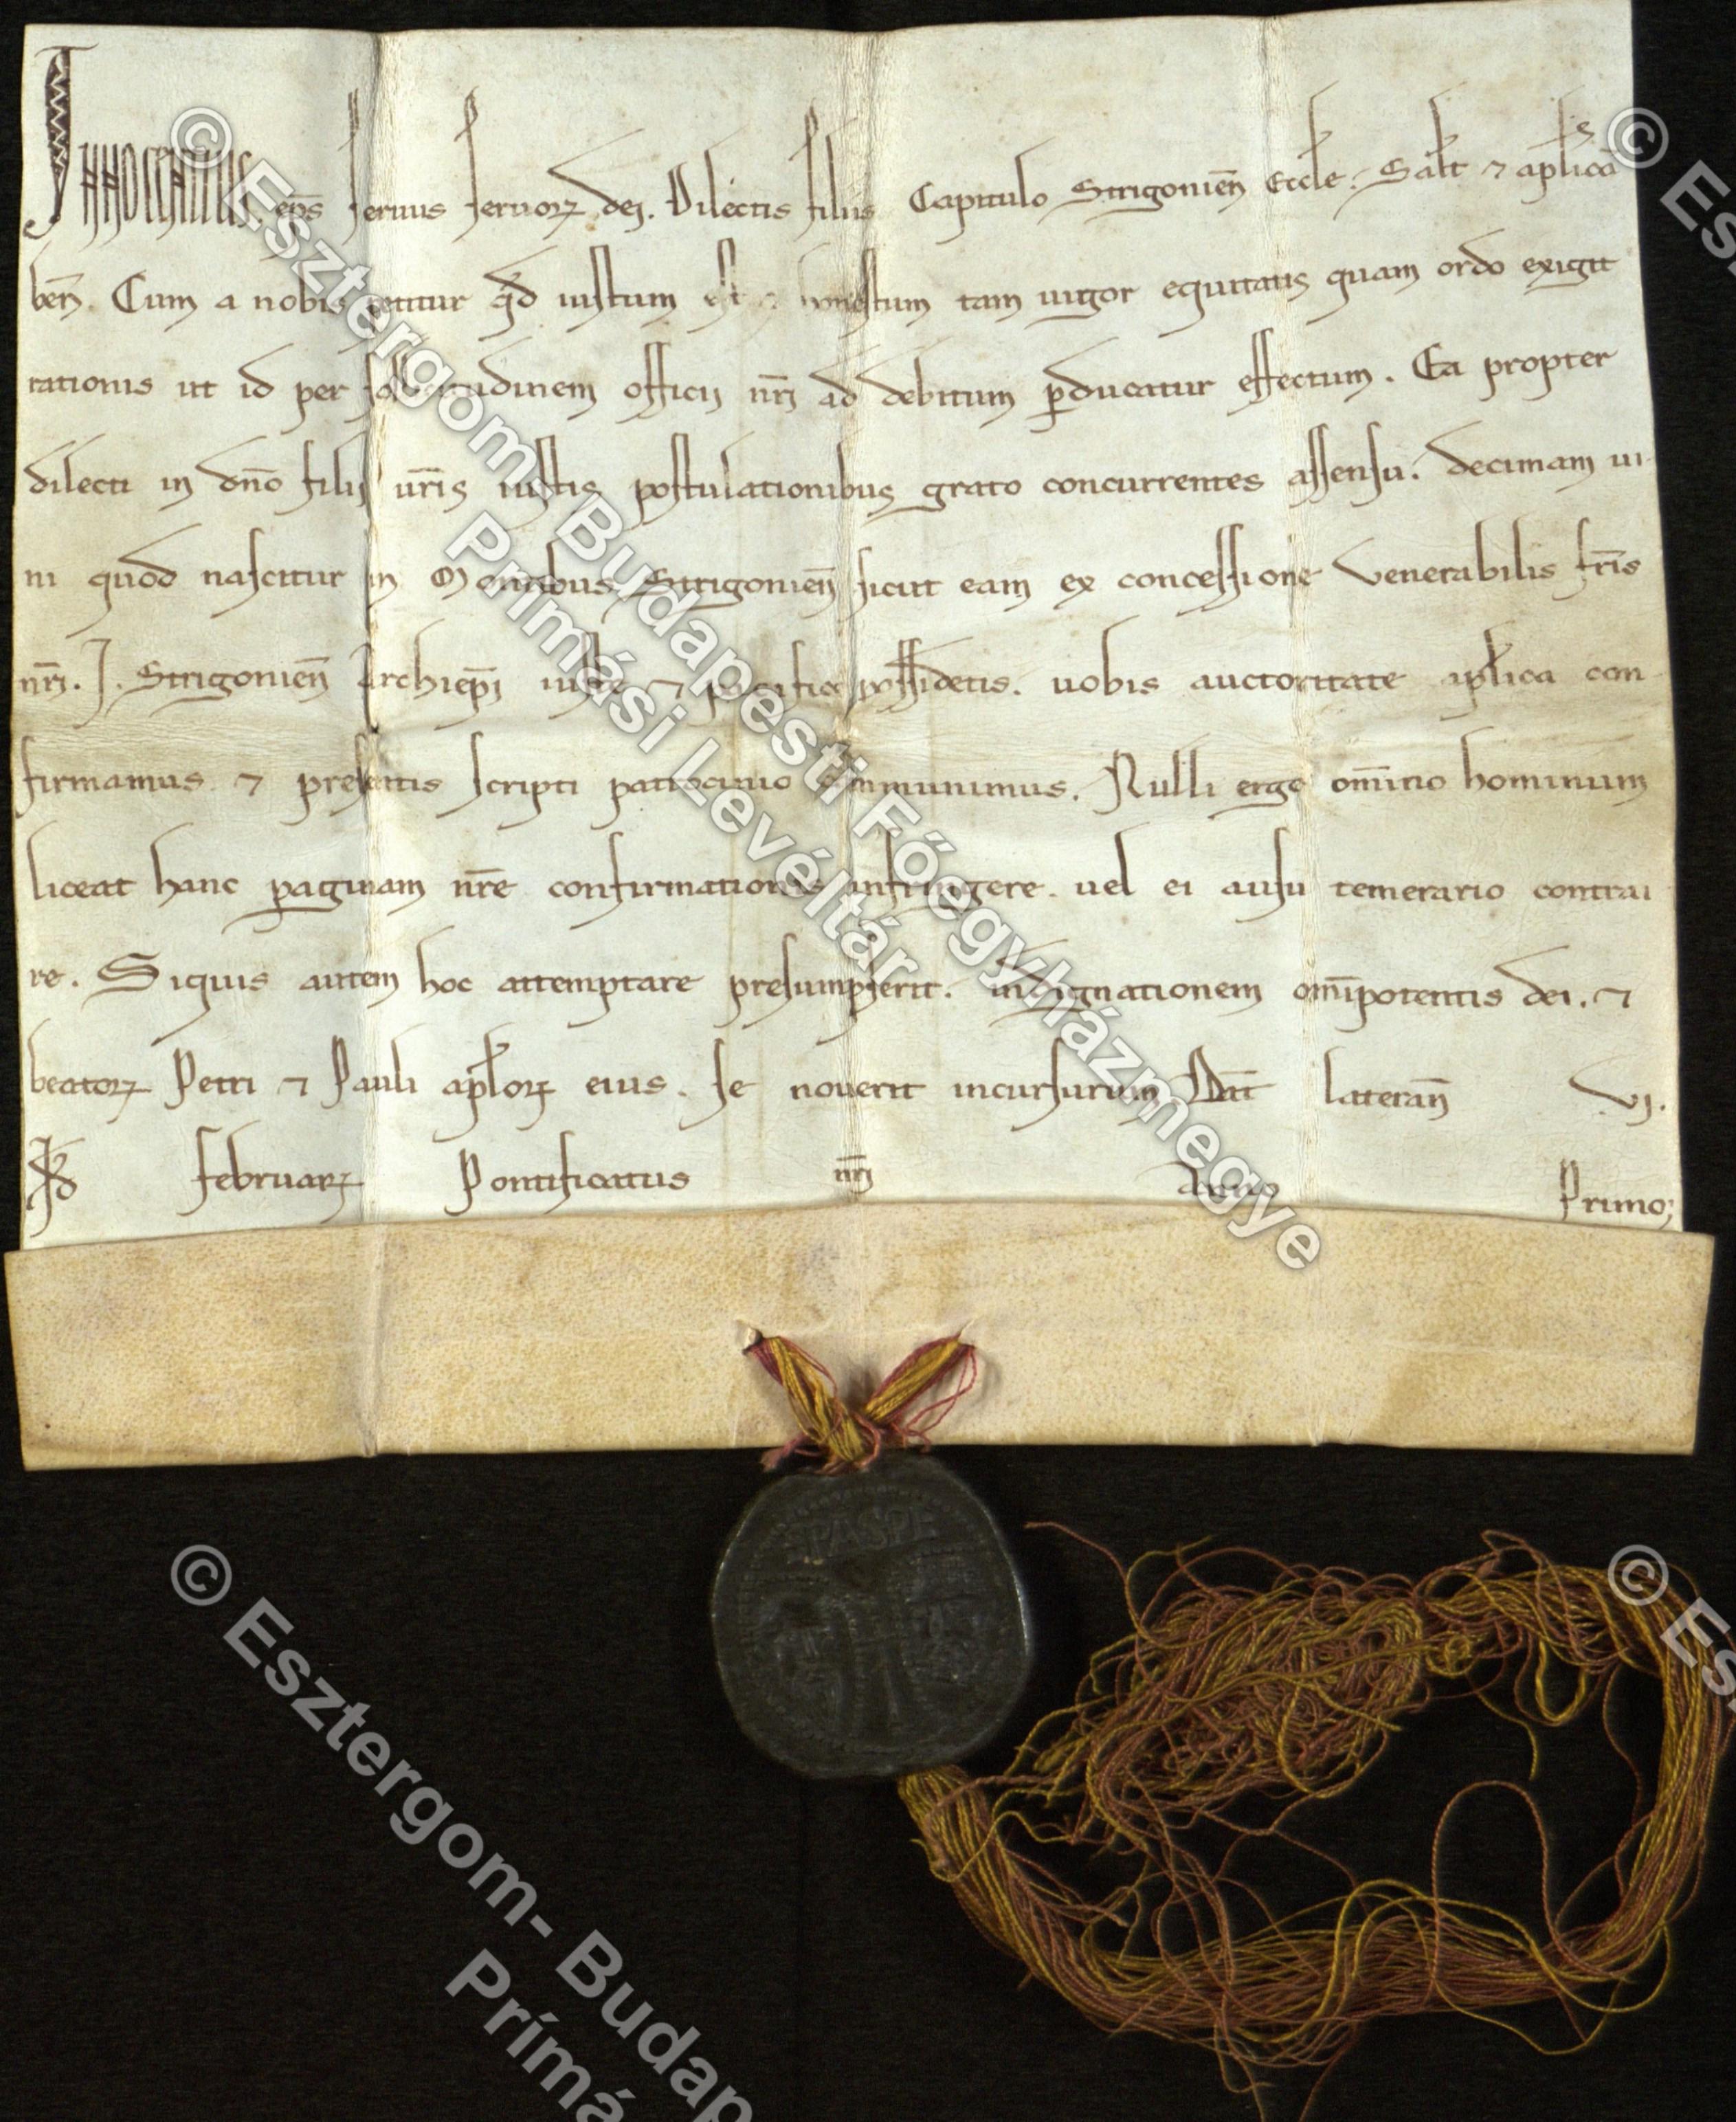 Innocentius ep̄s seruus seruoꝝ dei. Dilectis filiis Capitulo Strigonien̄ Eccl̄e. Sal̄t ⁊ apl̄icā
ben̄. Cum a nobis petitur qd̄ iustum est ⁊ honestum tam uigor equitatis quam ordo exigit
rationis ut id per sollicitudinem officij nr̄i ad debitum ꝑducatur effectum. Ea propter
dilecti in dn̄o filij ur̄is iustis postulationibus grato concurrentes assensu. decimam ui-
ni quod nascitur in Montibus Strigonien̄ sicut eam ex concessione Venerabilis fr̄is
nr̄i. J. Strigonien̄ Archiep̄i iuste ⁊ pacifice possidetis. uobis auctoritate apl̄ica con-
firmamus ⁊ presentis scripti patrocinio communimus. Nulli ergo om̄ino hominum
liceat hanc paginam nr̄e confirmationis infringere. uel ei ausu temerario contrai
re. Siquis autem hoc attemptare presumpserit. indignationem om̄ipotentis dei. ⁊
beatoꝝ Petri ⁊ Pauli apl̄oꝝ eius. se nouerit incursurum Dat̄ lateran̄ vj.
kl̄ februarꝝ Pontificatus nr̄i Anno Primo;
SPASPE
© Esztergom-Budapesti Főegyházmegye
Prímási Levéltár
© Es
© Esztergom-Budap
Primá
© Es